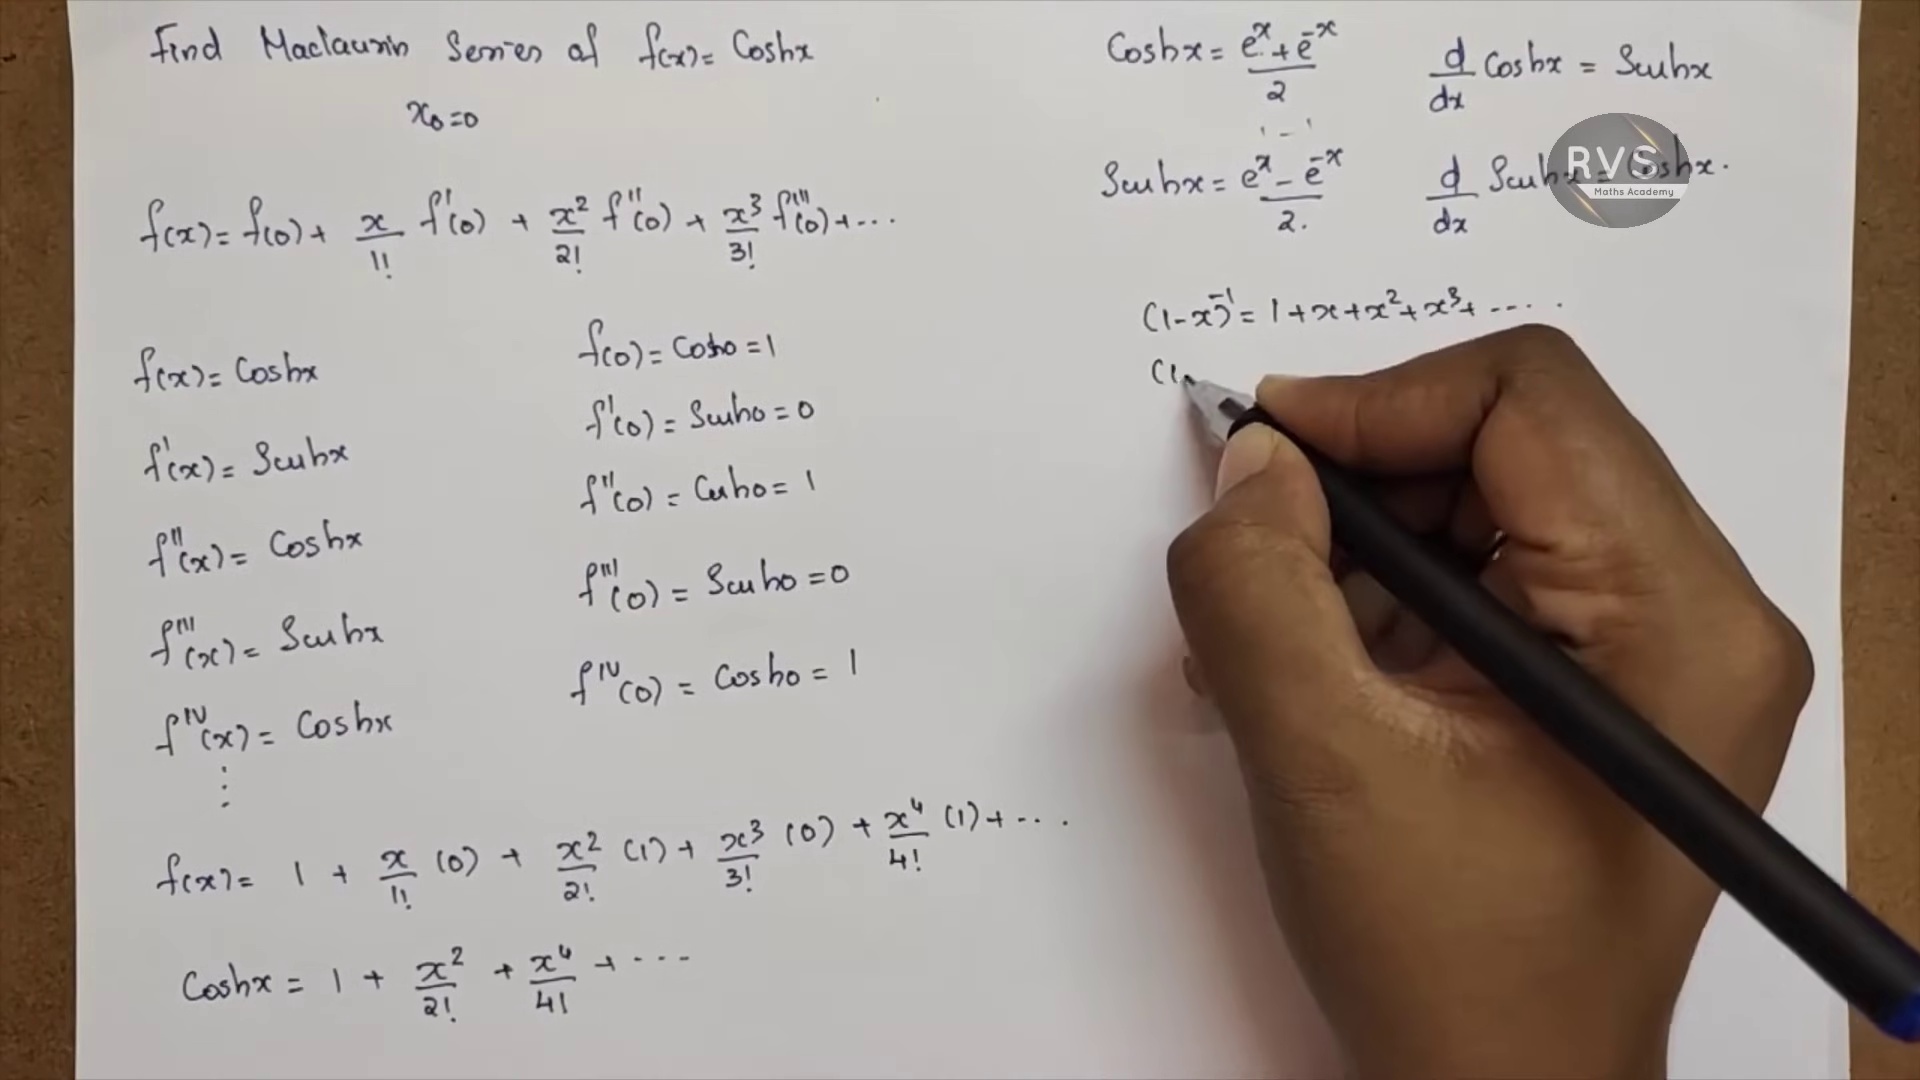 Find Maclaurin Series of f(x) = Coshx
x₀=0
f(x) = f(0) + x/1! f'(0) + x²/2! f''(0) + x³/3! f'''(0) + ...
f(x) = Coshx
f(0) = Cosh0 = 1
f'(x) = Sinhx
f'(0) = Sinh0 = 0
f''(x) = Coshx
f''(0) = Cosh0 = 1
f'''(x) = Sinhx
f'''(0) = Sinh0 = 0
fᴵⱽ(x) = Coshx
fᴵⱽ(0) = Cosh0 = 1
⋮
f(x) = 1 + x/1! (0) + x²/2! (1) + x³/3! (0) + x⁴/4! (1) + ...
Coshx = 1 + x²/2! + x⁴/4! + ...
Coshx = (eˣ + e⁻ˣ)/2
d/dx Coshx = Sinhx
1 - 1
Sinhx = (eˣ - e⁻ˣ)/2.
d/dx Sinhx = Coshx.
RVS
Maths Academy
(1-x)⁻¹ = 1+x+x²+x³+ .....
(1